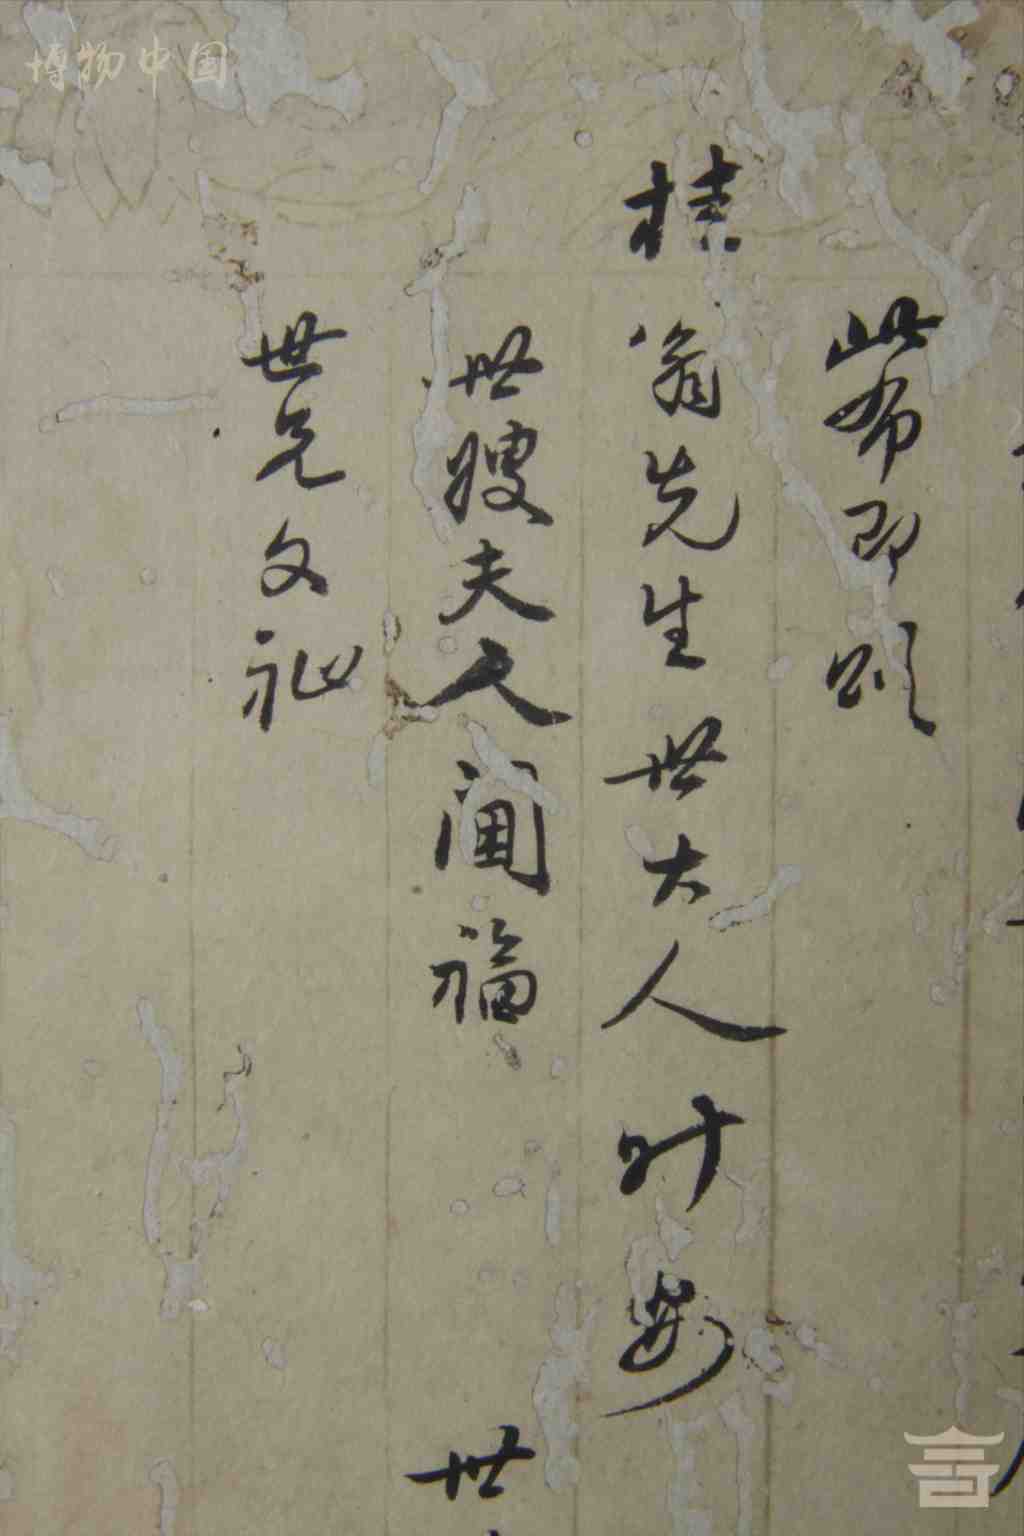 此布即頌
桂翁先生世大人时安
世嫂夫人闔福
世
世兄文祉
博物中国